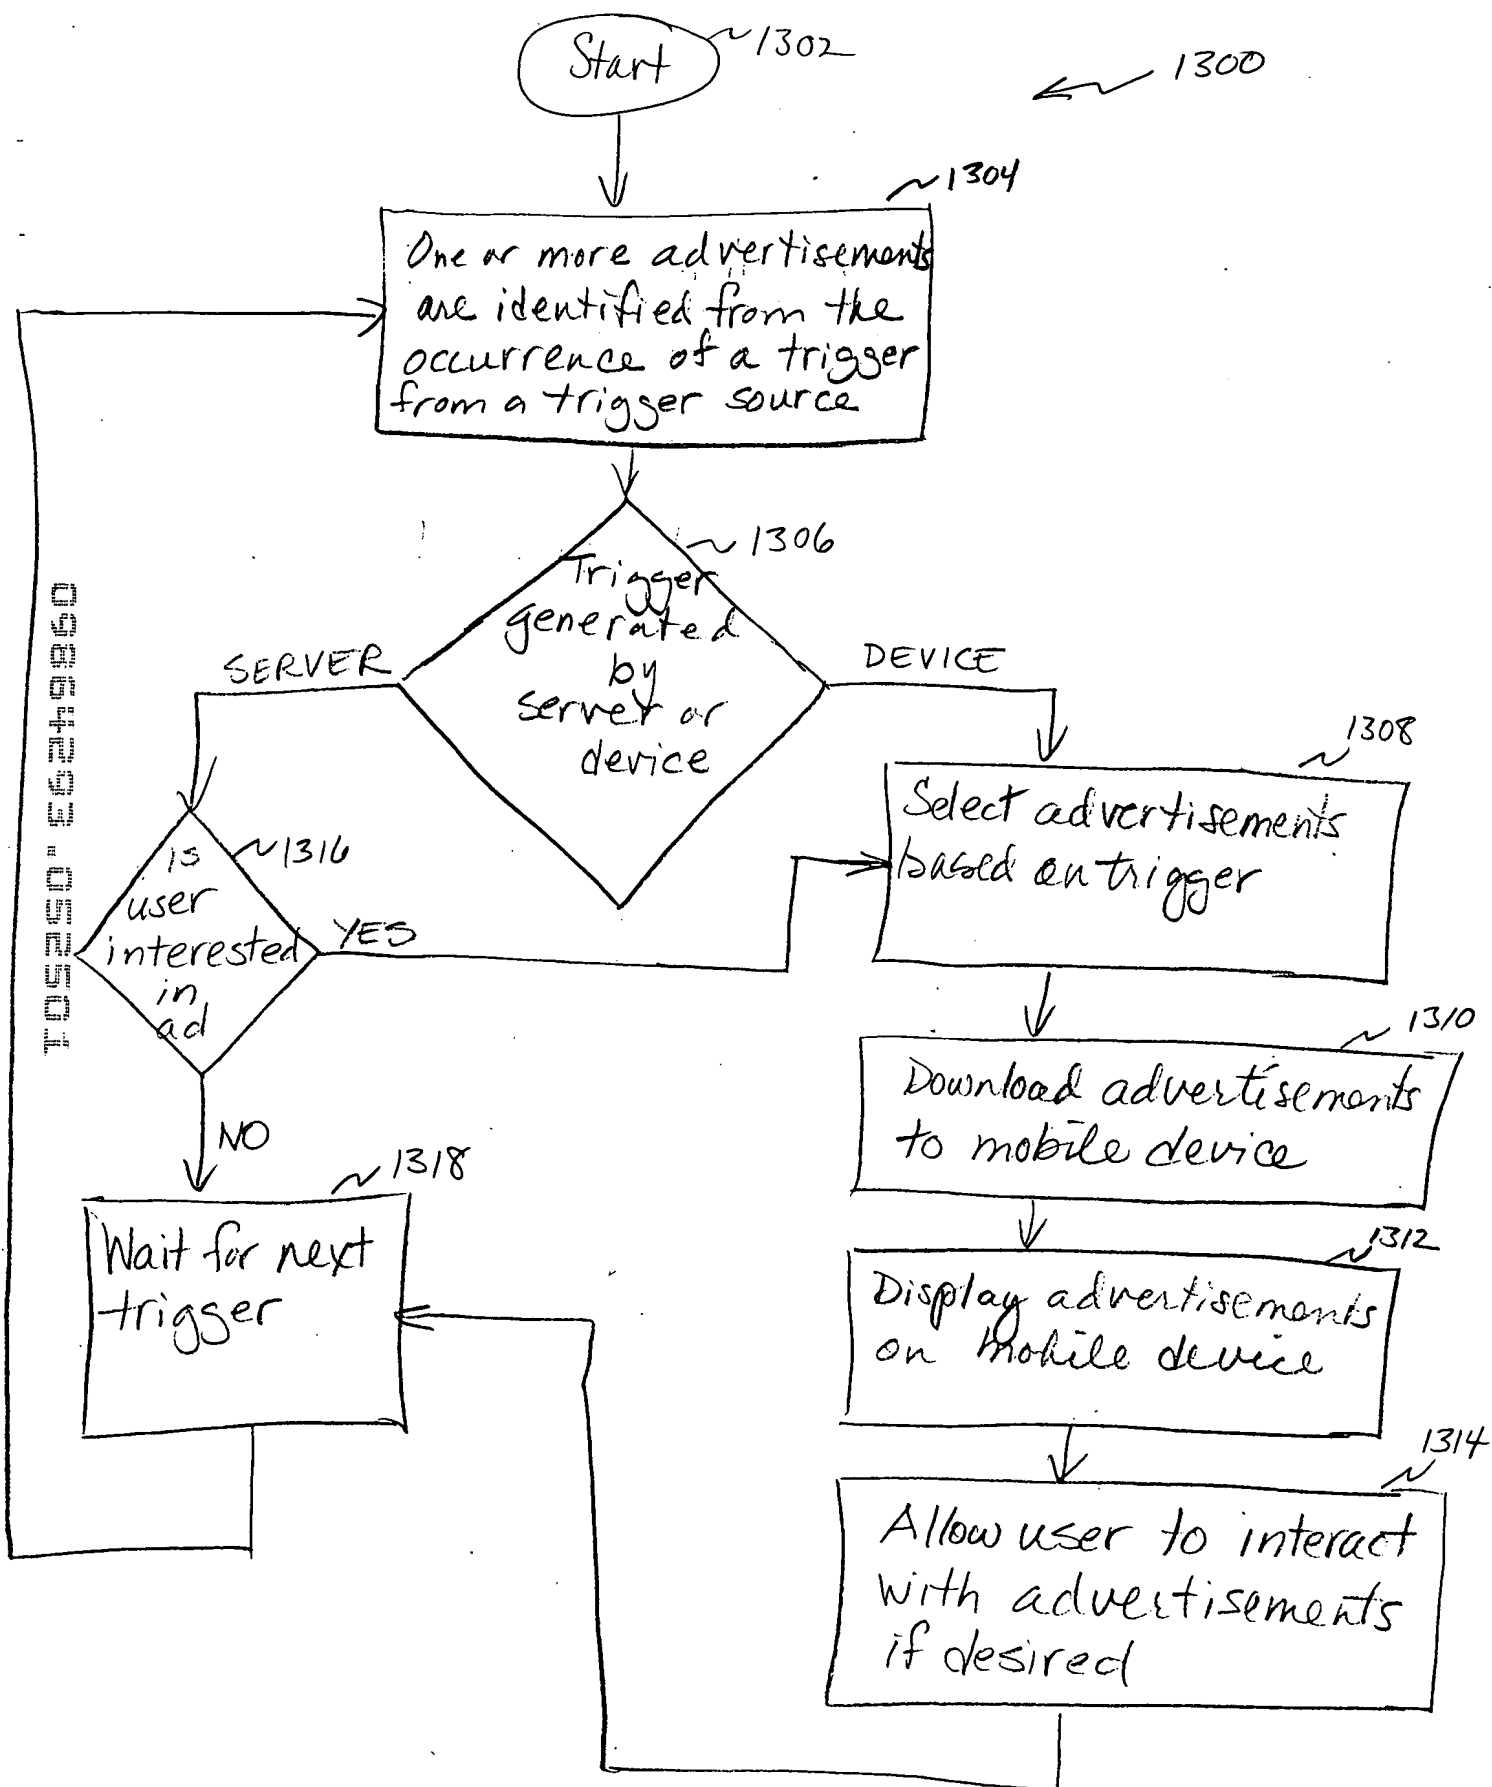 Start
1302
1300
1304
One or more advertisements
are identified from the
occurrence of a trigger
from a trigger source
1306
Trigger
generated
by
server or
device
SERVER
DEVICE
1308
Select advertisements
based on trigger
1316
is
user
interested
in
ad
YES
NO
1310
Download advertisements
to mobile device
1318
Wait for next
trigger
1312
Display advertisements
on mobile device
1314
Allow user to interact
with advertisements
if desired
09864293.052501